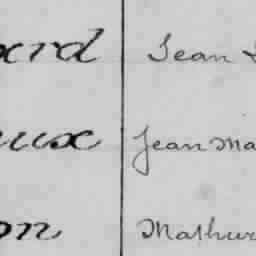 ard Jean
aux Jean Ma
on Mathur